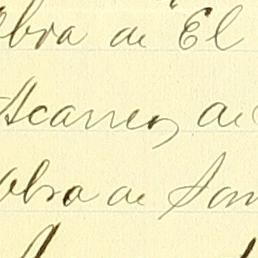 Obra de "El
Acarreo, de
Obra de San